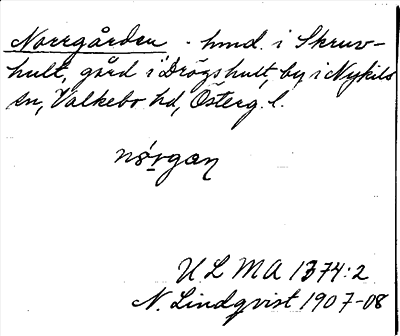 Norrgården, hmd. i Skruv-
hult, gård i Drögshult, by i Nykils
sn, Valkebo hd, Österg. l.
nǿrgan
ULMA 1374:2
N. Lindqvist 1907-08